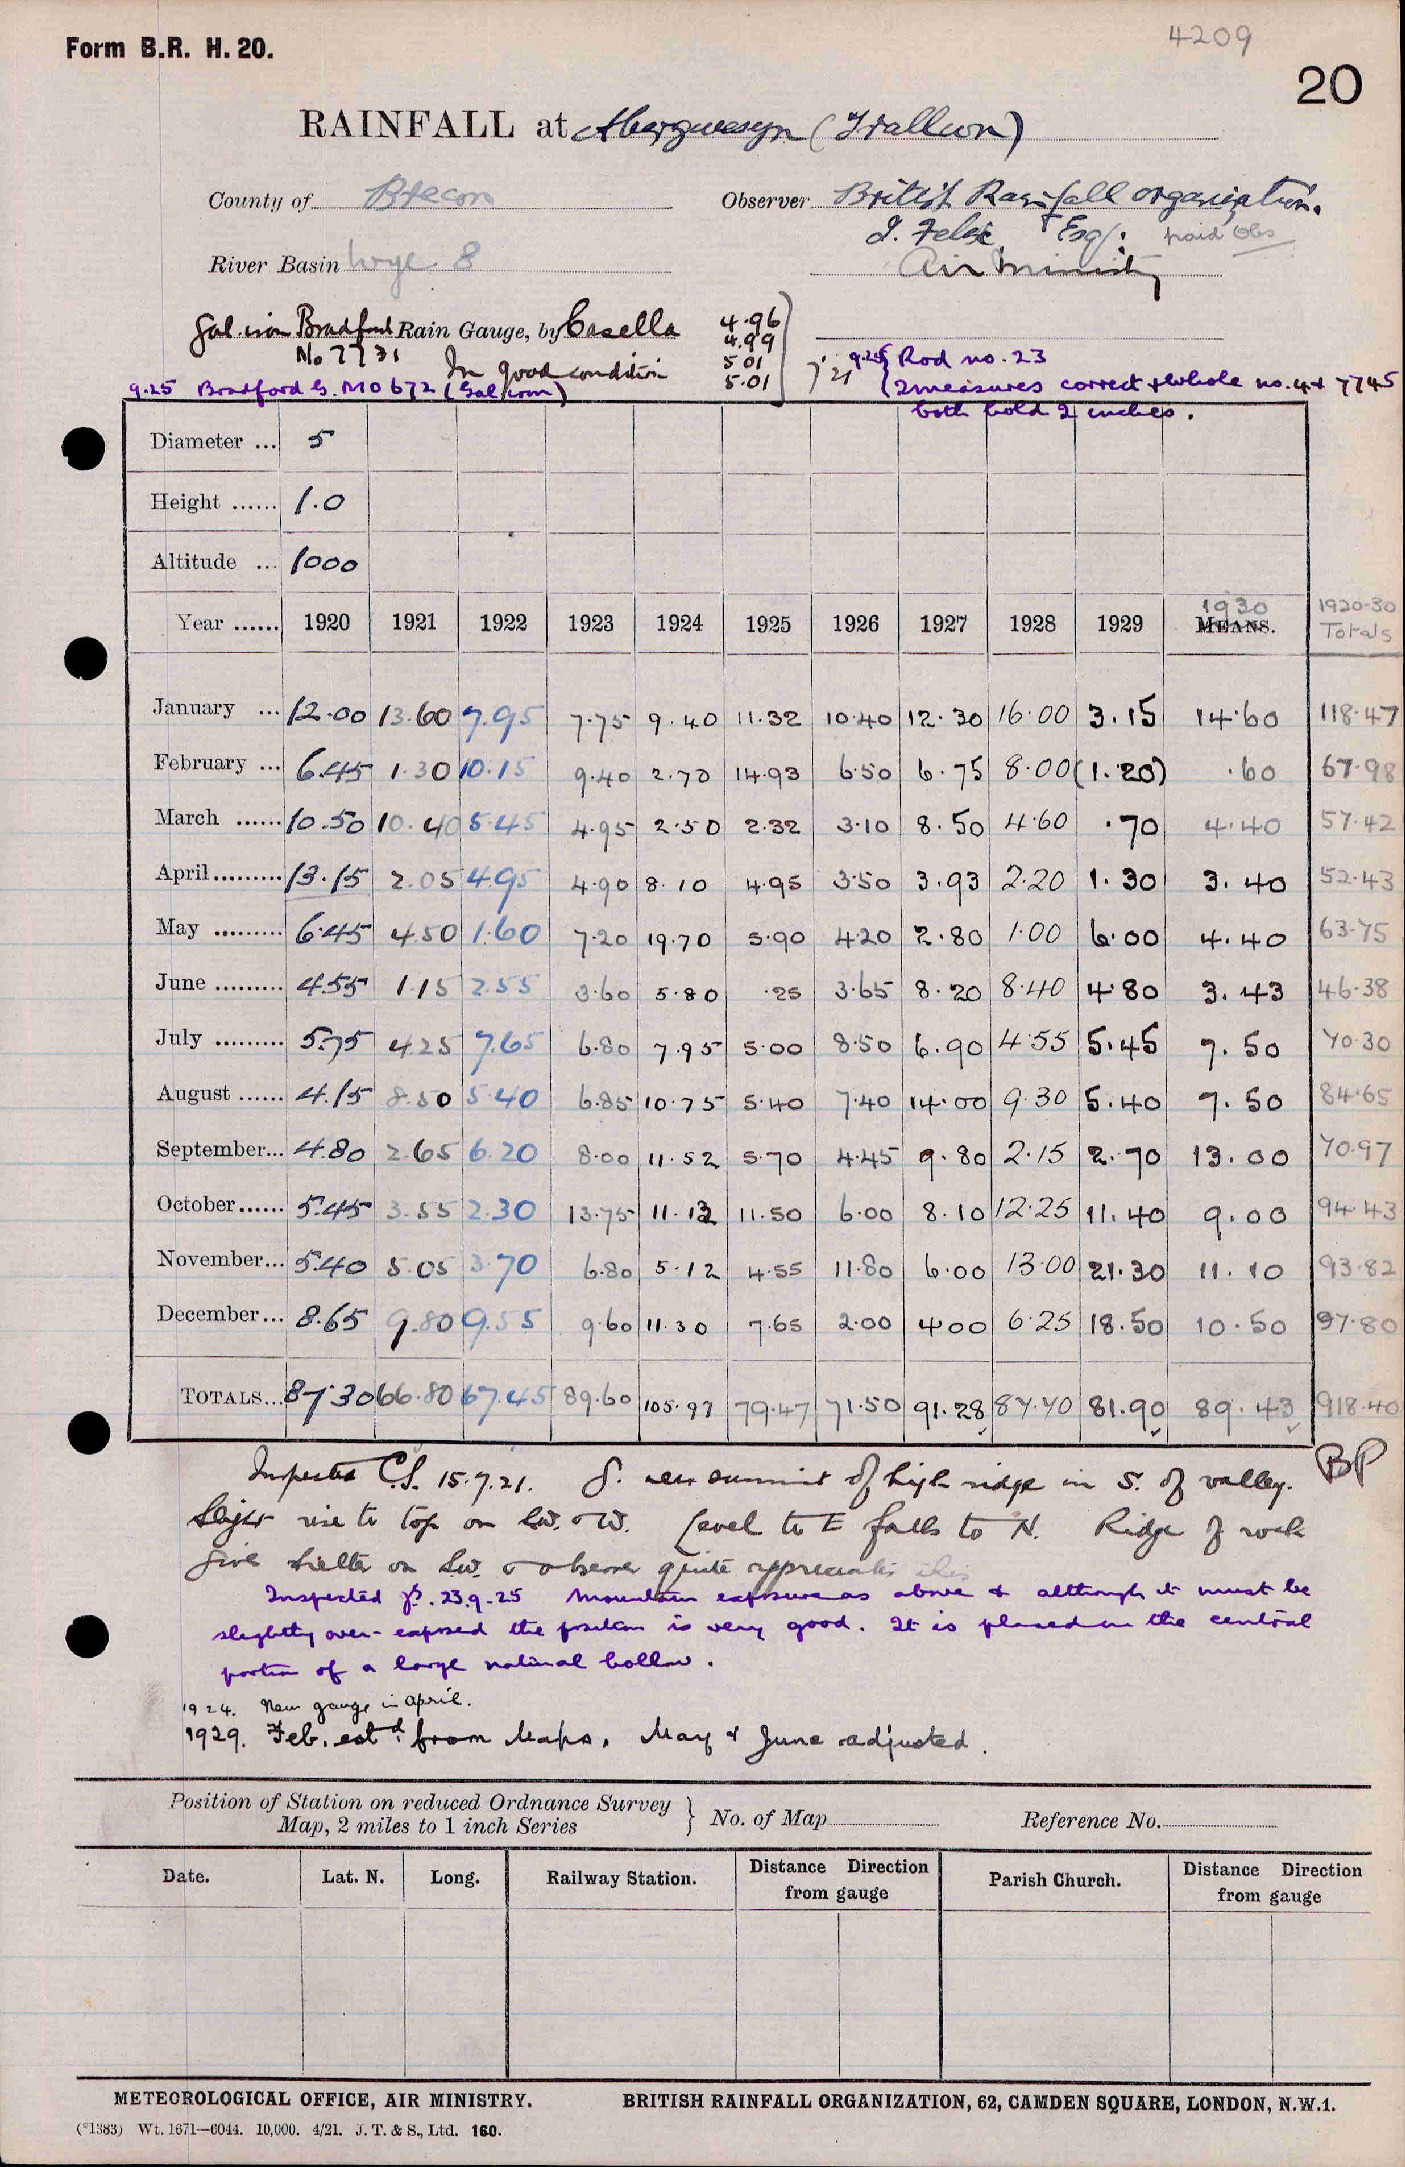 4209
Form B.R. H. 20.
20
RAINFALL at Abergwesyn (Trallwm)
County of Brecon Observer British Rainfall Organization.
J. Felix, Esq: paid Obs
River Basin Wye 8 Air Ministry
Gal. iron Bradford Rain Gauge, by Casella
No 7731 In good condition
4.96
4.99
5.01
5.01
7'21
9.25 Bradford G. MO 672 (Gal iron)
9.25 Rod no. 23
(2 measures correct + whole no. 4 + 7745
both hold 2 inches.
Diameter ... 5
Height ...... 1.0
Altitude ... 1000
Year ...... 1920 1921 1922 1923 1924 1925 1926 1927 1928 1929 1930 MEANS. 1920-30 Totals
January ... 12.00 13.60 7.95 7.75 9.40 11.32 10.40 12.30 16.00 3.15 14.60 118.47
February ... 6.45 1.30 10.15 9.40 2.70 14.93 6.50 6.75 8.00 (1.20) .60 67.98
March ...... 10.50 10.40 5.45 4.95 2.50 2.32 3.10 8.50 4.60 .70 4.40 57.42
April......... 13.15 2.05 4.95 4.90 8.10 4.95 3.50 3.93 2.20 1.30 3.40 52.43
May ......... 6.45 4.50 1.60 7.20 19.70 5.90 4.20 2.80 1.00 6.00 4.40 63.75
June ......... 4.55 1.15 2.55 3.60 5.80 .25 3.65 8.20 8.40 4.80 3.43 46.38
July ......... 5.75 4.25 7.65 6.80 7.95 5.00 8.50 6.90 4.55 5.45 7.50 70.30
August ...... 4.15 8.50 5.40 6.85 10.75 5.40 7.40 14.00 9.30 5.40 7.50 84.65
September... 4.80 2.65 6.20 8.00 11.52 5.70 4.45 9.80 2.15 2.70 13.00 70.97
October...... 5.45 3.55 2.30 13.75 11.13 11.50 6.00 8.10 12.25 11.40 9.00 94.43
November... 5.40 5.05 3.70 6.80 5.12 4.55 11.80 6.00 13.00 21.30 11.10 93.82
December... 8.65 9.80 9.55 9.60 11.30 7.65 2.00 4.00 6.25 18.50 10.50 97.80
TOTALS... 87.30 66.80 67.45 89.60 105.97 79.47 71.50 91.28 87.70 81.90 89.43 918.40
BP
Inspected C.S. 15.7.21. G. near summit of high ridge in S. of valley.
Slight rise to top on SW. & W. Level to E falls to N. Ridge of rock
gives shelter on SW. & observer quite appreciates this
Inspected 23.9.25 Mountain exposure as above & although it must be
slightly over-exposed the position is very good. It is placed in the central
portion of a large natural hollow.
1924. New gauge in April.
1929. Feb. estd. from Maps, May & June adjusted.
Position of Station on reduced Ordnance Survey
Map, 2 miles to 1 inch Series } No. of Map Reference No.
Date. Lat. N. Long. Railway Station. Distance Direction from gauge Parish Church. Distance Direction from gauge
METEOROLOGICAL OFFICE, AIR MINISTRY. BRITISH RAINFALL ORGANIZATION, 62, CAMDEN SQUARE, LONDON, N.W.1.
(*1383) Wt. 1671—6044. 10,000. 4/21. J. T. & S., Ltd. 160.